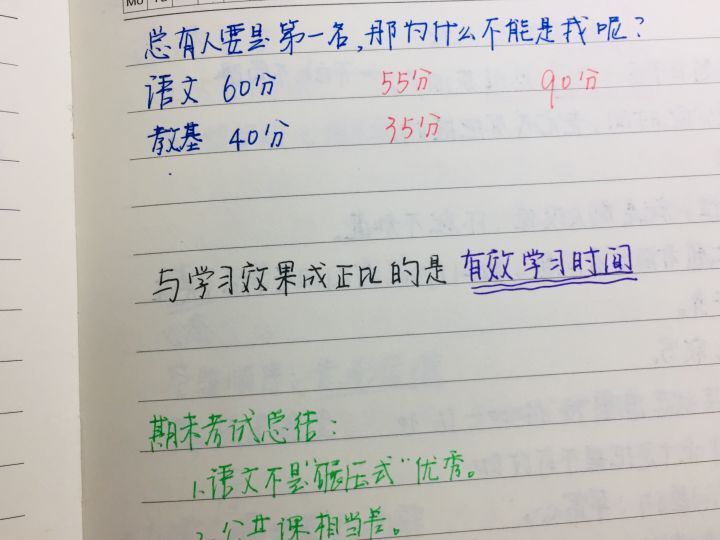 总有人要是第一名,那为什么不能是我呢?
语文 60分 55分 90分
教基 40分 35分
与学习效果成正比的是 有效学习时间
期末考试总结:
1.语文不是“碾压式”优秀。
2.公共课相当差。